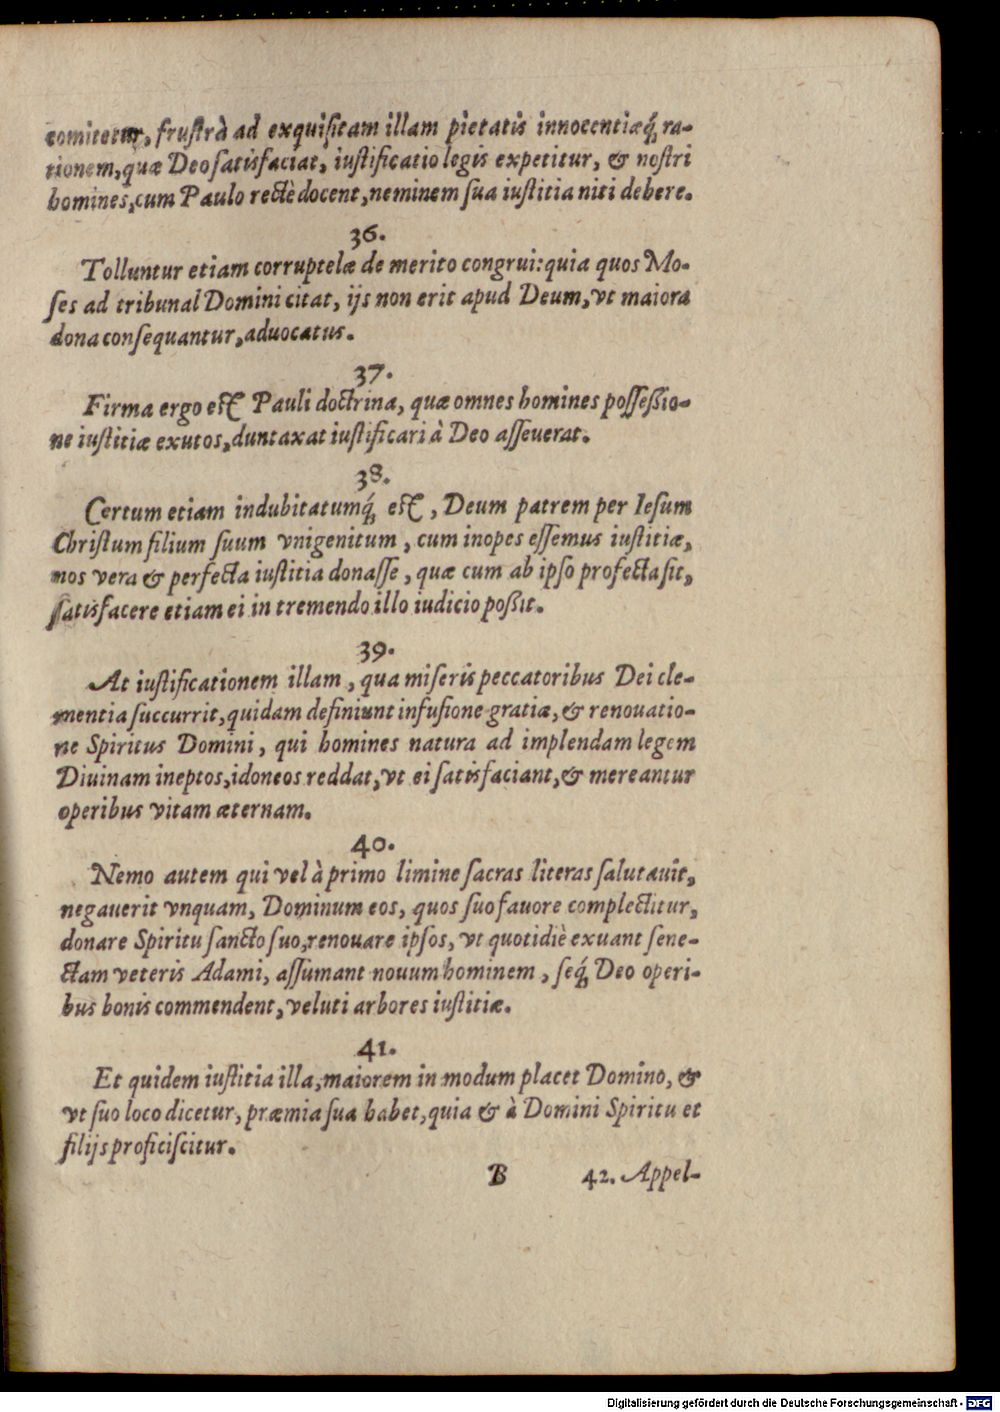 comitetur, frustrà ad exquisitam illam pietatis innocentiæq́; ra-
tionem, quæ Deo satisfaciat, iustificatio legis expetitur, & nostri
homines, cum Paulo rectè docent, neminem sua iustitia niti debere.
36.
Tolluntur etiam corruptelæ de merito congrui: quia quos Mo-
ses ad tribunal Domini citat, ijs non erit apud Deum, vt maiora
dona consequantur, aduocatus.
37.
Firma ergo est Pauli doctrina, quæ omnes homines possessio-
ne iustitiæ exutos, duntaxat iustificari à Deo asseuerat.
38.
Certum etiam indubitatumq́; est, Deum patrem per Iesum
Christum filium suum vnigenitum, cum inopes essemus iustitiæ,
nos vera & perfecta iustitia donasse, quæ cum ab ipso profecta sit,
satisfacere etiam ei in tremendo illo iudicio possit.
39.
At iustificationem illam, qua miseris peccatoribus Dei cle-
mentia succurrit, quidam definiunt infusione gratiæ, & renouatio-
ne Spiritus Domini, qui homines natura ad implendam legem
Diuinam ineptos, idoneos reddat, vt ei satisfaciant, & mereantur
operibus vitam æternam.
40.
Nemo autem qui vel à primo limine sacras literas salutauit,
negauerit vnquam, Dominum eos, quos suo fauore complectitur,
donare Spiritu sancto suo, renouare ipsos, vt quotidiè exuant sene-
ctam veteris Adami, assumant nouum hominem, seq́; Deo operi-
bus bonis commendent, veluti arbores iustitiæ.
41.
Et quidem iustitia illa, maiorem in modum placet Domino, &
vt suo loco dicetur, præmia sua habet, quia & à Domini Spiritu et
filijs proficiscitur.
B 42. Appel-
Digitalisierung gefördert durch die Deutsche Forschungsgemeinschaft - DFG